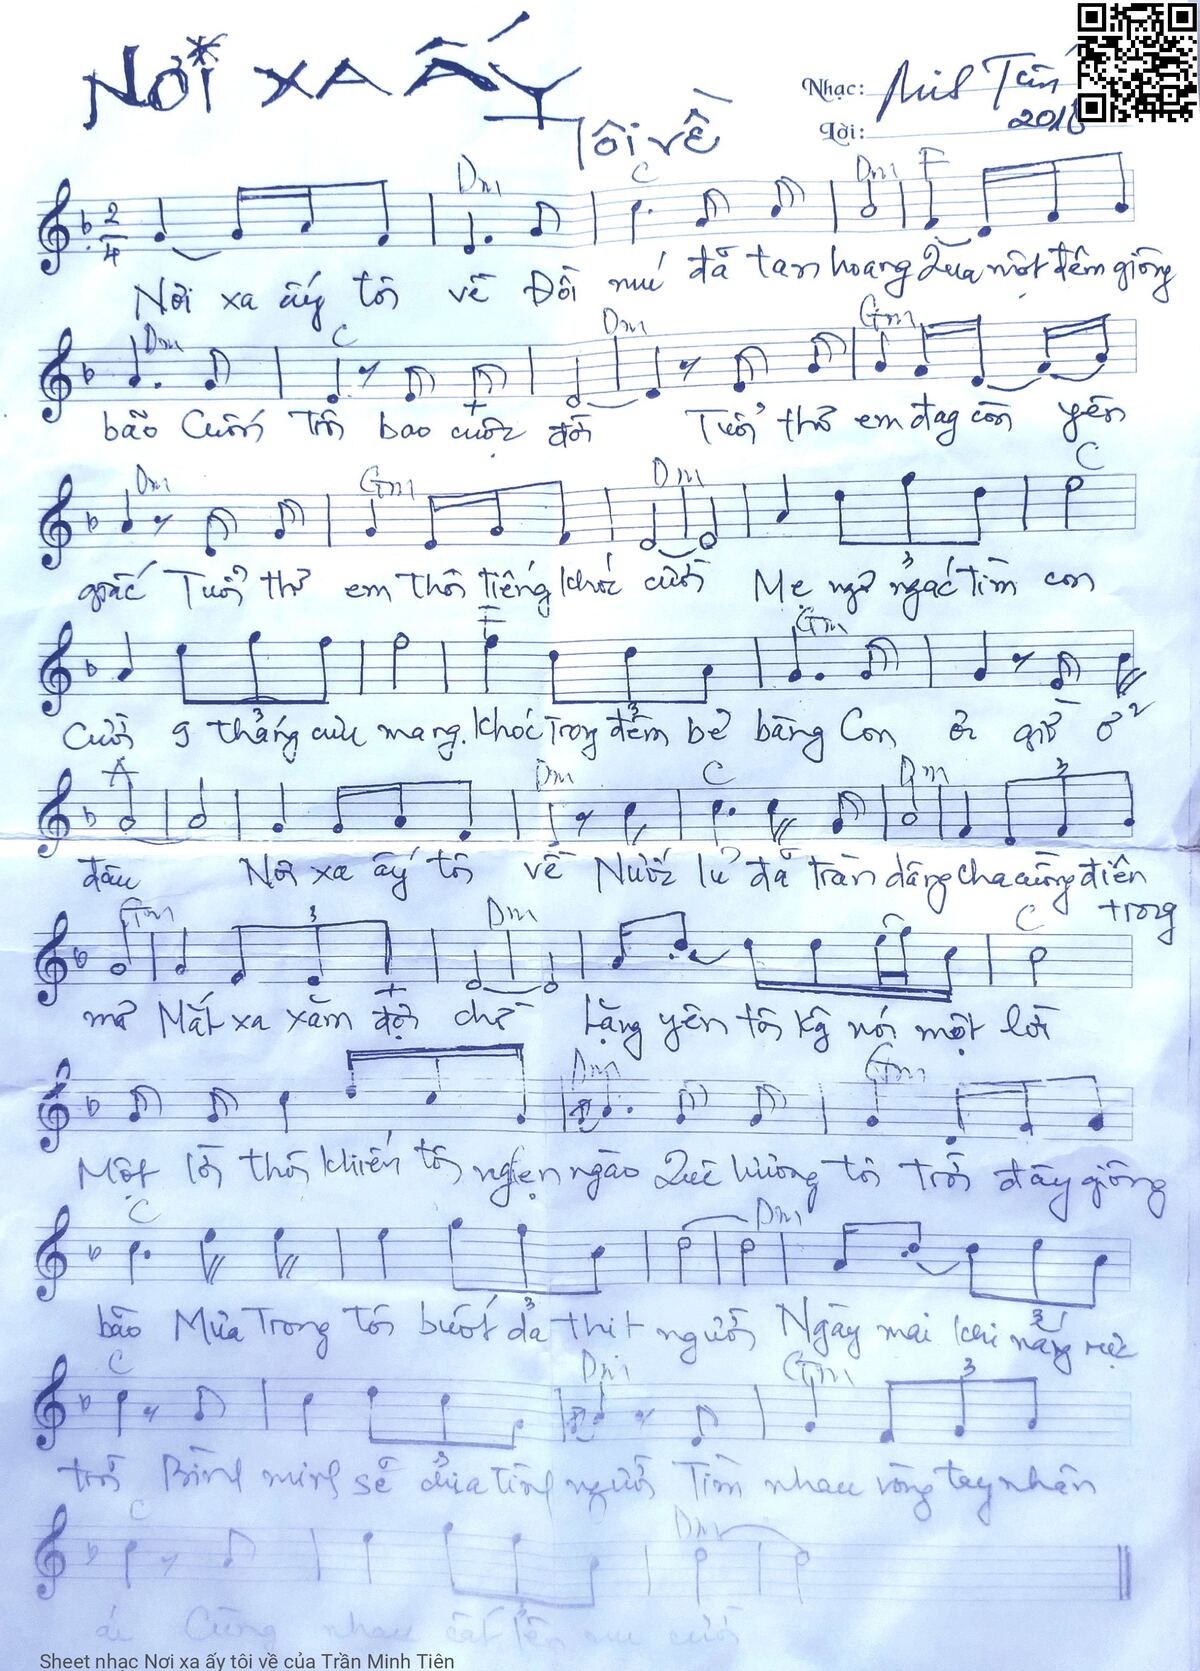 NƠI XA ẤY
Tôi về
Nhạc: Minh Tiên
2016
Lời:
2/4
Dm C Dm F
Nơi xa ấy tôi về Đồi núi đã tan hoang Qua một đêm giông
Dm C Dm Gm
bão Cuốn trôi bao cuộc đời Tuổi thơ em đag còn yên
Dm Gm Dm C
giấc Tuổi thơ em thôi tiếng khóc cười Mẹ ngơ ngác tìm con
3
F Gm
Cười 9 tháng cưu mang. khóc trong đêm bẽ bàng Con ơi giờ ở
3 3
A Dm C Dm 3
đâu Nơi xa ấy tôi về Nước lũ đã tràn dâng cha cuồng điên
trong
Gm 3 Dm C
mơ Mắt xa xăm đợi chờ Lặng yên tôi kg nói một lời
Dm Gm
Một lời thôi khiến tôi nghẹn ngào Quê hương tôi trời đầy giông
C Dm
bão Mưa Trong tôi buốt da thịt người Ngày mai khi nắng rực
3 3
C Dm Gm 3
trời Bình minh sẽ đưa tình người Tìm nhau vòng tay nhân
3
C Dm
ái Cùng nhau cất lên nụ cười
3
Sheet nhạc Nơi xa ấy tôi về của Trần Minh Tiên